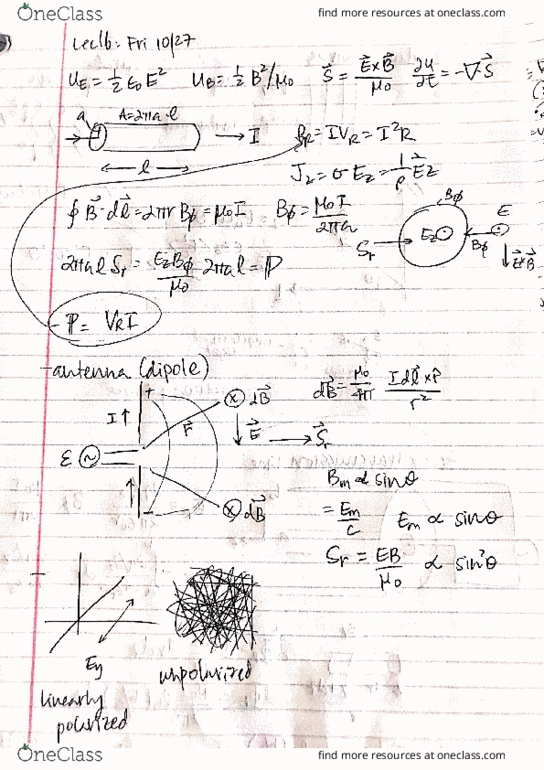 OneClass find more resources at oneclass.com
Lec16: Fri 10/27
U_E = ½ ε₀E² U_B = ½ B²/μ₀ S⃗ = E⃗×B⃗/μ₀ ∂u/∂t = -∇S⃗
a A=2πa·l → I P_R = IV_R = I²R
← l → J_z = σE_z = 1/ρ E⃗z
∮B⃗·dl⃗ = 2πr B_φ = μ₀I B_φ = μ₀I/2πa
B_φ E
S_r → E_z⊙ B_φ
↓ E⃗×B⃗
2πal S_r = E_zB_φ/μ₀ 2πal = P
P = V_R I
-antenna (dipole)
dB⃗ = μ₀/4π Idl⃗×r̂/r²
I↑ + ⊗ dB⃗
r⃗ ↓E⃗ → S⃗_r
ε ~
↑ - ⊗ dB⃗
B_m ∝ sinθ
= E_m/c E_m ∝ sinθ
S_r = EB/μ₀ ∝ sin²θ
E_y
unpolarized
linearly
polarized
OneClass find more resources at oneclass.com